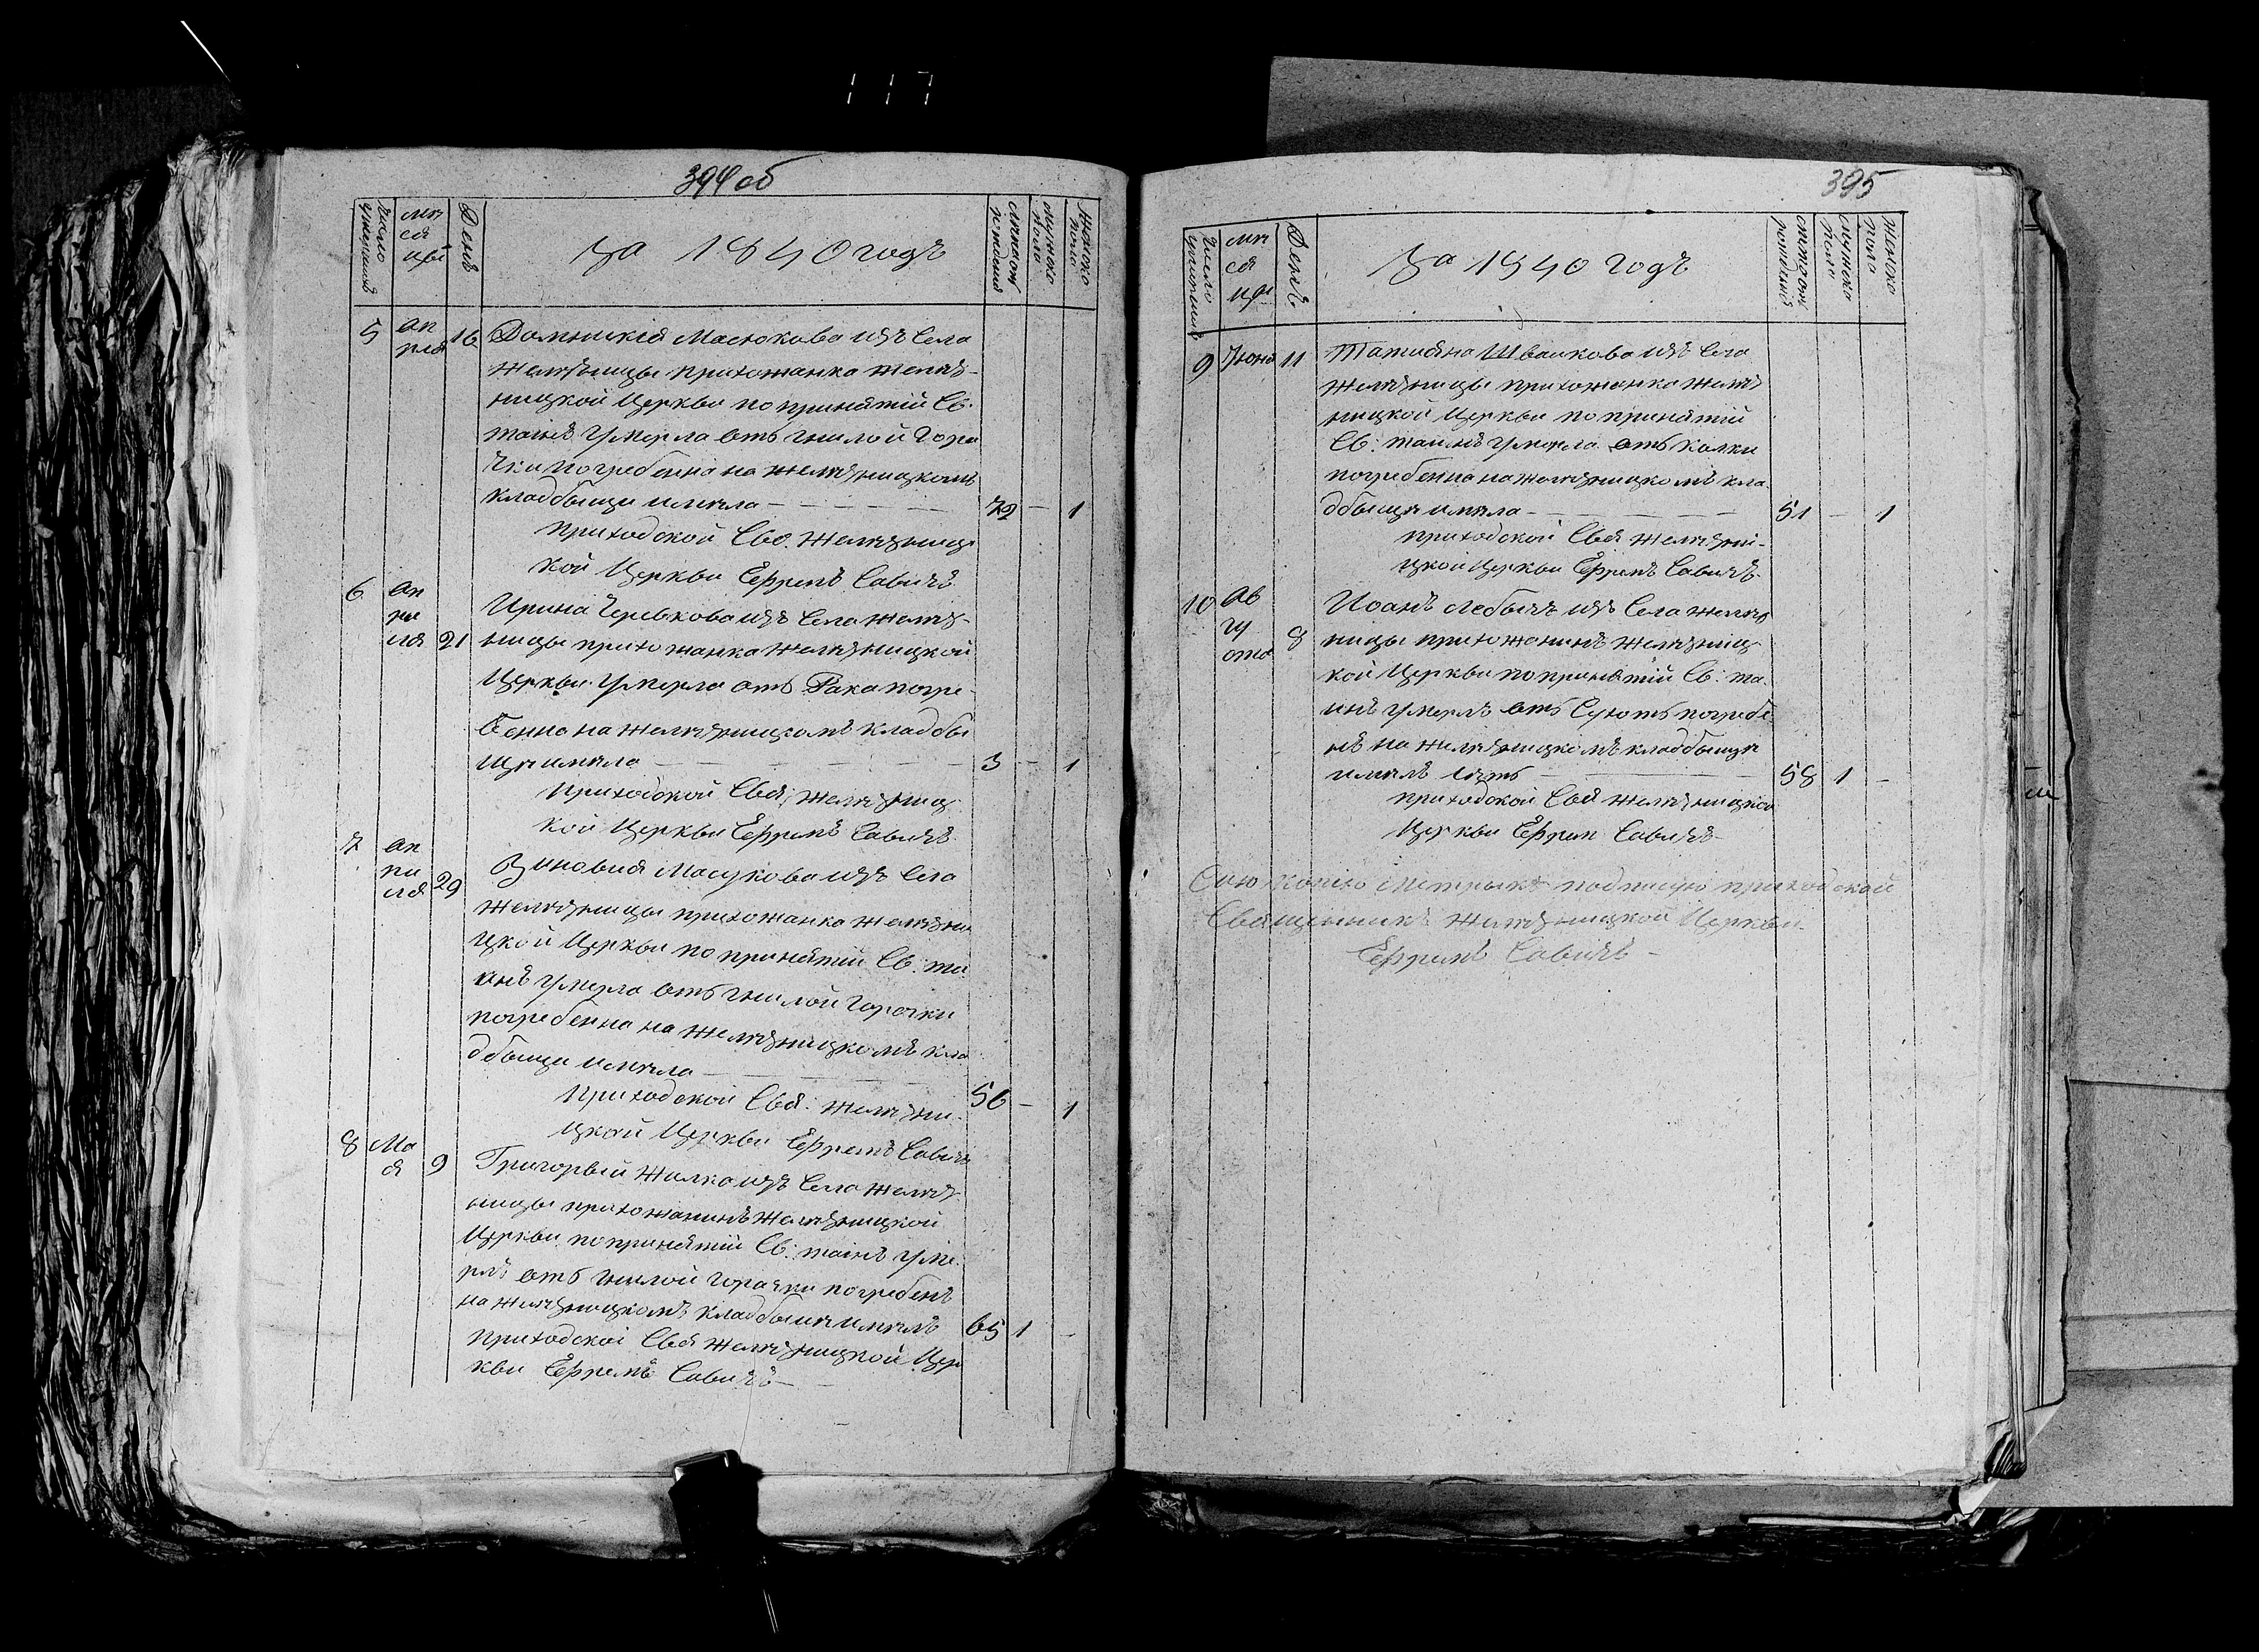 117
394 об
Число умершихъ
Мѣсяцы
День
За 1840 годъ
Лѣта отъ рождения
Мужеска пола
Женска пола
5 Апрля 16 Домникія Масюкова изъ Села
Желѣзницы прихожанка Желѣз-
ницкой Церкви по принятіи Св.
таинъ умерла отъ гнилой Горя
чки погребенна на Желѣзницкомъ
кладбыщи имѣла - 72 - 1
приходской Свя. Желѣзниц
кой Церкви Ефремъ Савичъ
6 Априля 21 Ирина Черевкова изъ Села Желѣз-
ницы прихожанка Желѣзницкой
Церкви умерла отъ Рака погре-
бенна на Желѣзницкомъ кладбы
щи имѣла - 3 - 1
приходской Свя: Желѣзниц
кой Церкви Ефремъ Савичъ
7 Апиля 29 Зиновия Масукова изъ Села
Желѣзницы прихожанка Желѣзни
цкой Церкви по принятіи Св: та
инъ умерла отъ гнилой горочки
погребенна на Желѣзницкомъ кла
дбыщи имѣла - 56 - 1
Приходской Свя: Желѣзни-
цкой Церкви Ефремъ Савичъ
8 Мая 9 Григорвий Жилка изъ Села Желѣз-
ницы прихожанинъ Желѣзницкой
Церкви по принятіи Св: таинъ уме-
рлъ отъ гнилой горячки погребенъ
на Желѣзницкомъ кладбыщи имѣлъ 65 1 -
приходской Свя Желѣзницкой Цер
кви Ефремъ Савичъ
395
Число умершихъ
Мѣсяцы
День
За 1840 Годъ
Лѣта отъ рождения
Мужеска пола
Женска пола
9 Июня 11 Татияна Швайкова изъ Села
Желѣзницы прихожанка Желѣз
ницкой Церкви по принятіи
Св: таинъ умерла отъ Колки
погребенна на Желѣзницкомъ кла-
дбыщи имѣла - 51 - 1
приходской Свя Желѣзни-
цкой Церкви Ефремъ Савичъ
10 Августа 8 Иоанъ Лебычъ изъ Села Желѣз
ницы прихожанинъ Желѣзниц-
кой Церкви по принятіи Св: та-
инъ умерлъ отъ погребе
нъ на Желѣзницкомъ кладбыщи
имѣлъ лѣтъ - 58 1 -
приходской Свя Желѣзницкой
Церкви Ефрем Савичъ
Сию копию метрыкъ подписую приходской
Священникъ Желѣзницкой Церкви
Ефремъ Савичъ -